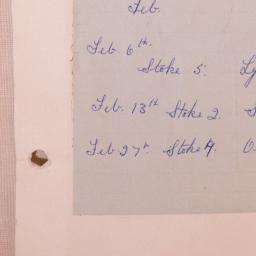 Feb.
Feb. 6th.
Stoke 5.
Feb. 13th Stoke 2.
Feb 27th. Stoke 4.